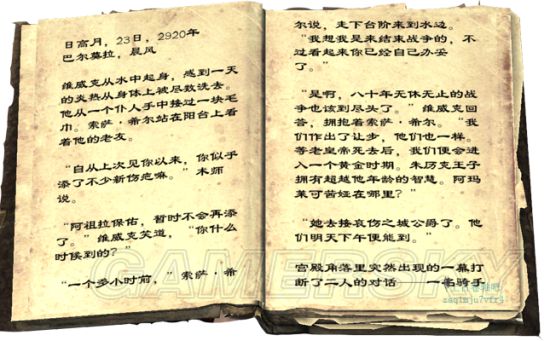 日高月，23日，2920年
巴尔莫拉，晨风
维威克从水中起身，感到一天
的炎热从身体上被尽数洗去。
他从一个仆人手中接过一块毛
巾。索萨·希尔站在阳台上看
着他的老友。
“自从上次见你以来，你似乎
添了不少新伤疤嘛。”术师
说。
“阿祖拉保佑，暂时不会再添
了。”维威克笑道，“你什么
时侯到的？”
“一个多小时前，”索萨·希
尔说，走下台阶来到水边。
“我想我是来结束战争的，不
过看起来你已经自己办妥
了。”
“是啊，八十年无休无止的战
争也该到尽头了。”维威克回
答，拥抱着索萨·希尔。“我
们作出了让步，他们也一样。
等老皇帝死去后，我们便会进
入一个黄金时期。朱历克王子
拥有超越他年龄的智慧。阿玛
莱可茜娅在哪里？”
“她去接哀伤之城公爵了。他
们明天下午便能到。”
宫殿角落里突然出现的一幕打
断了二人的对话 一名骑手
GAMERSKY